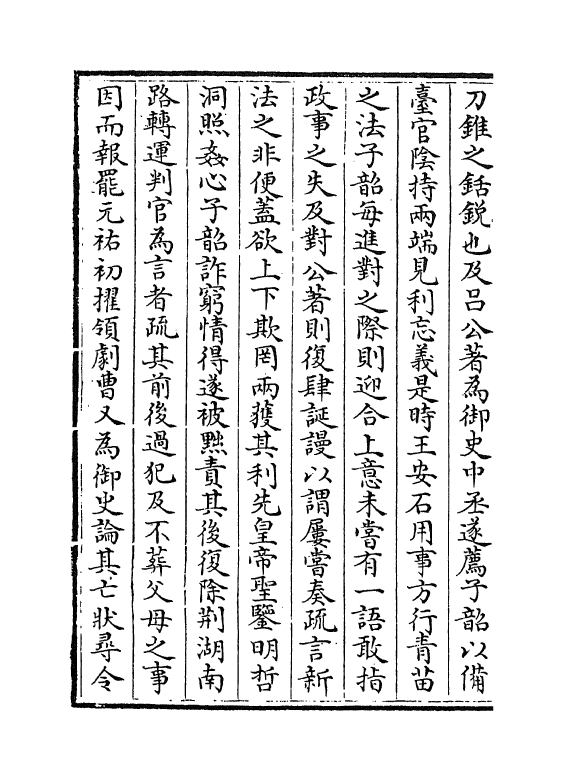 刀錐之銛鋭也及吕公著為御史中丞遂薦子韶以備
臺官陰持兩端見利忘義是時王安石用事方行青苗
之法子韶每進對之際則迎合上意未嘗有一語敢指
政事之失及對公著則復肆誕謾以謂屢嘗奏疏言新
法之非便蓋欲上下欺罔兩獲其利先皇帝聖鑒明哲
洞照姦心子韶詐窮情得遂被黜責其後復除荆湖南
路轉運判官為言者疏其前後過犯及不葬父母之事
因而報罷元祐初擢領劇曹又為御史論其亡狀尋令